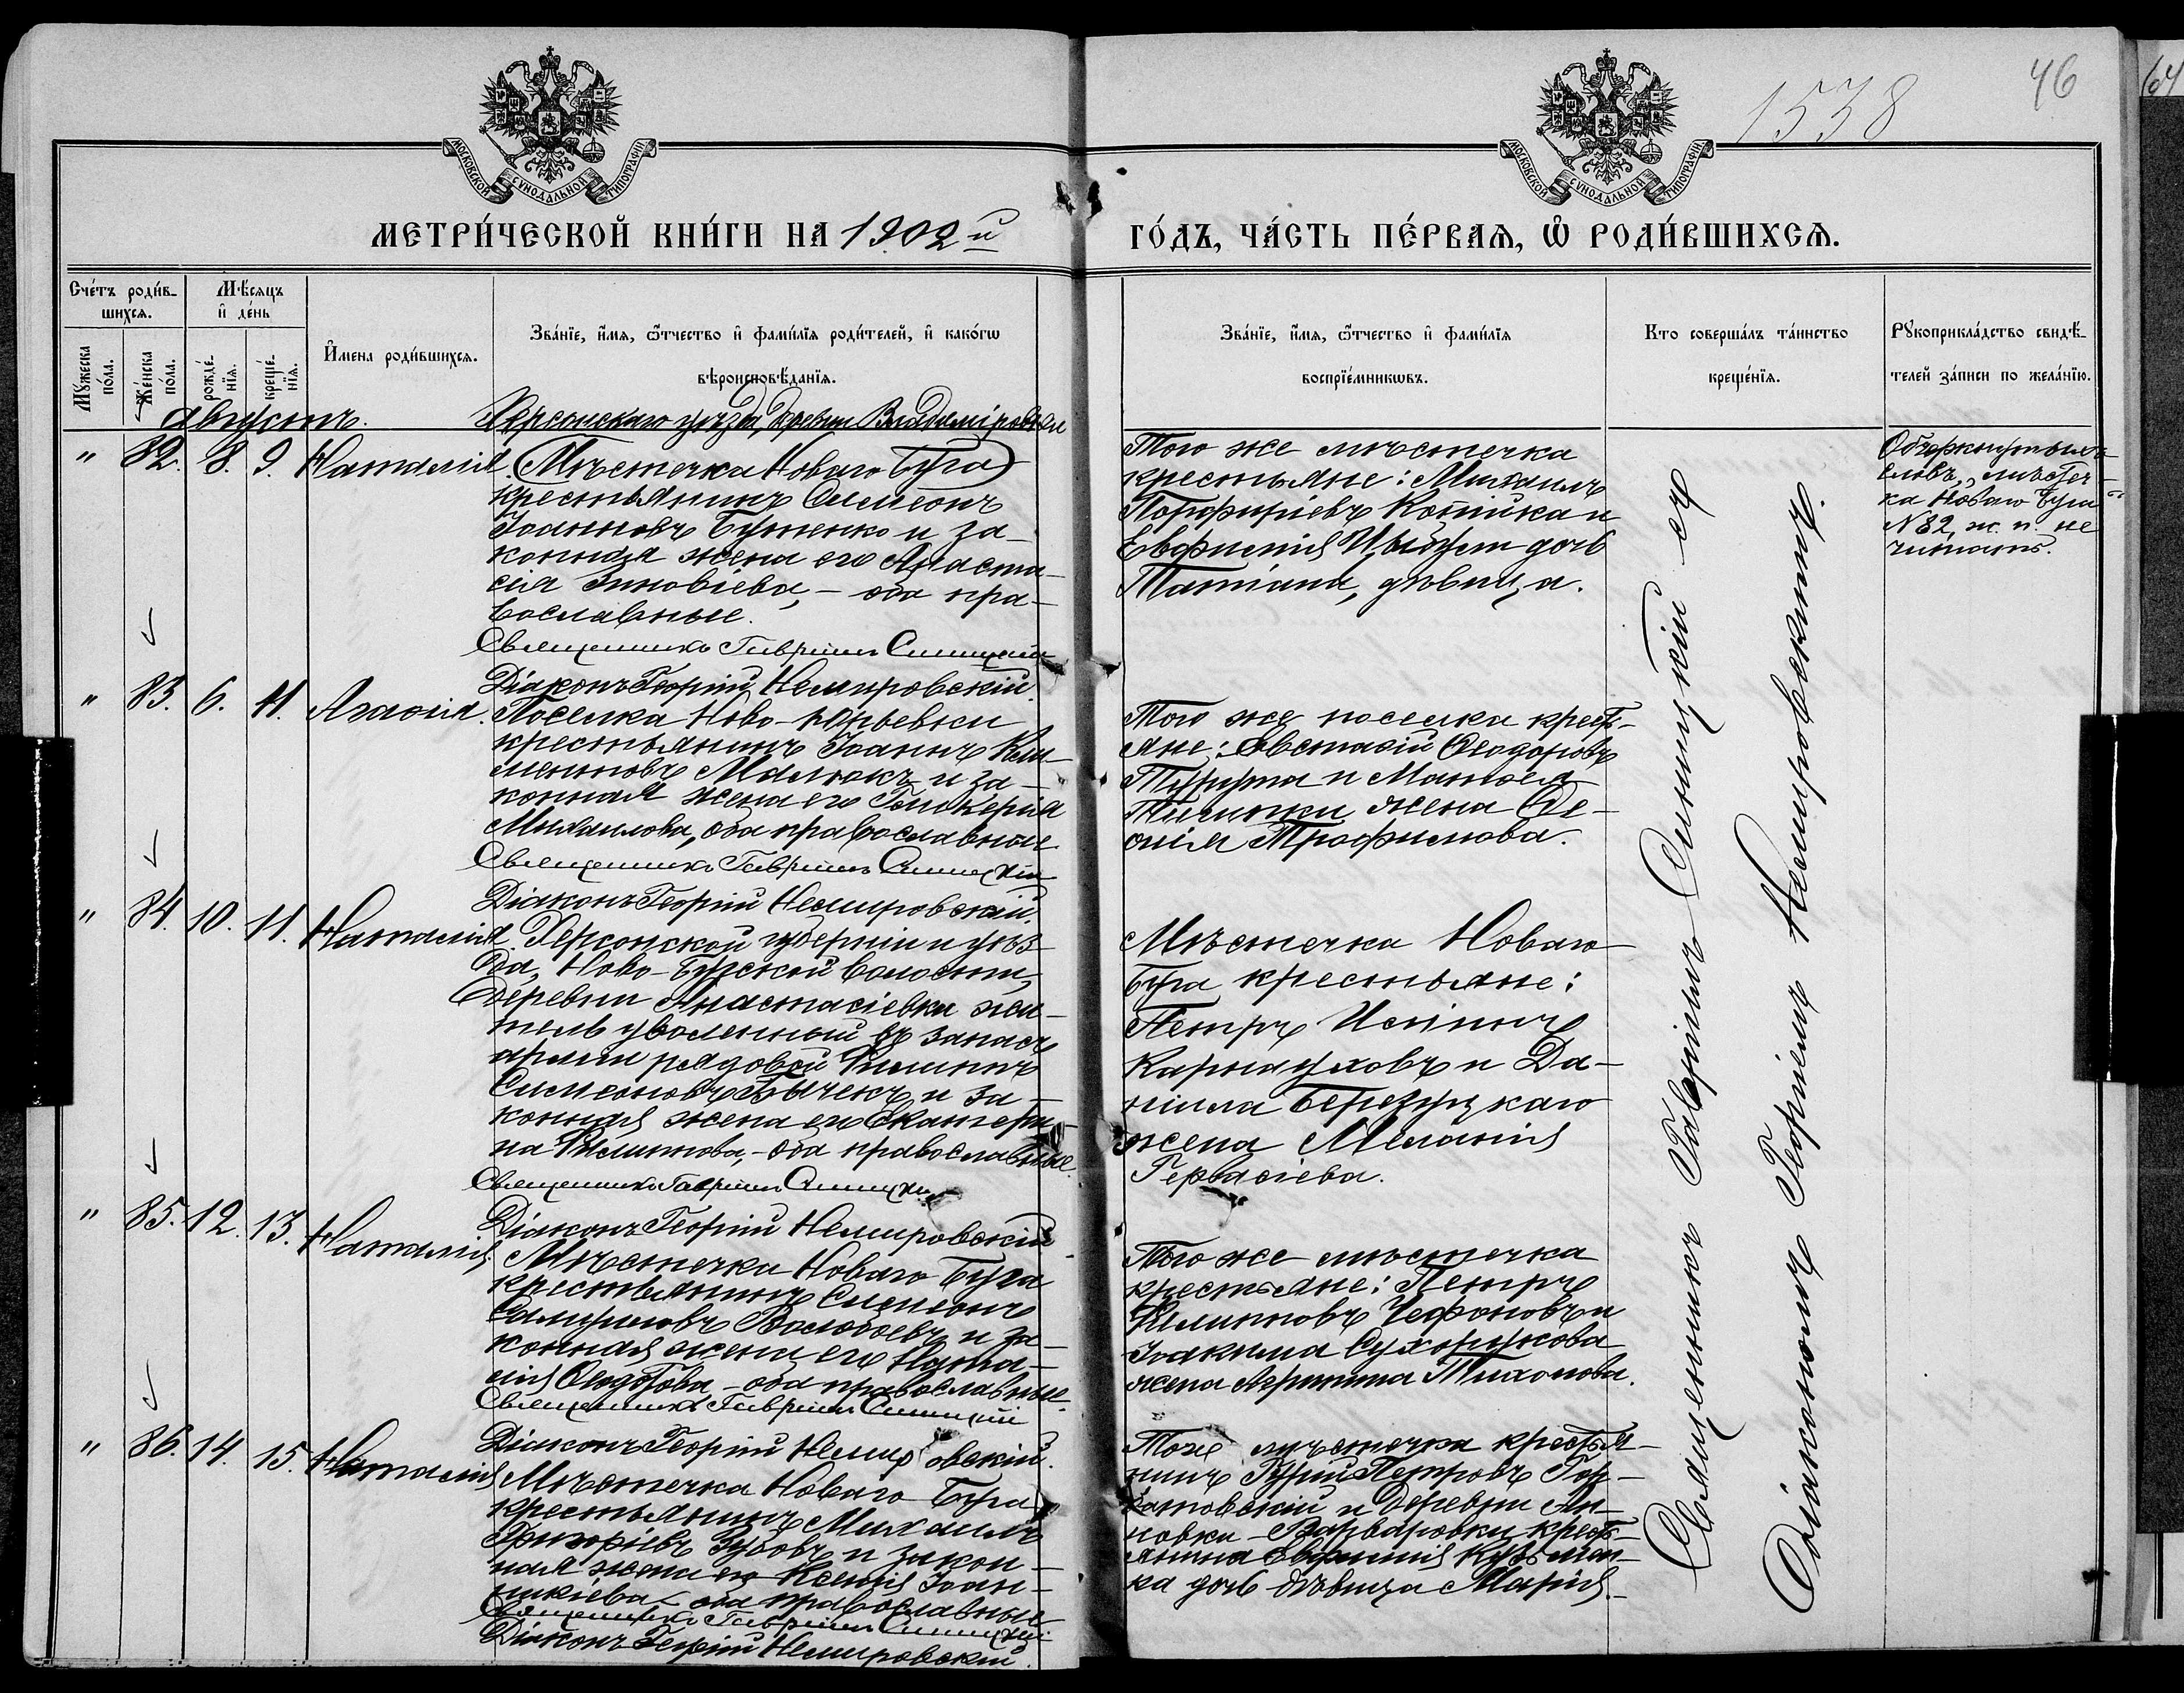 1538
46
МОСКОВСКОЙ СѴНОДАЛЬНОЙ ТИПОГРАФІИ
МОСКОВСКОЙ СѴНОДАЛЬНОЙ ТИПОГРАФІИ
МЕТРИ́ЧЕСКОЙ КНИ́ГИ НА 1902 й
ГО́ДЪ, ЧА́СТЬ ПЕ́РВАѦ, Ѡ҆ РОДИ́ВШИХСѦ.
Сче́тъ роди́в-
шихсѧ.
Мꙋ́жеска по́ла.
Же́нска по́ла.
Мѣ́сяцъ
и҆ де́нь
рожде́-
нїѧ.
креще́-
нїѧ.
И҆мена роди́вшихсѧ.
Зва́нїе, и҆́мѧ, ѻ҆́тчество и҆ фами́лїѧ роди́телей, и҆ како́гѡ
вѣроисповѣ́данїѧ.
Зва́нїе, и҆́мѧ, ѻ҆́тчество и҆ фами́лїѧ
воспрїе́мникѡвъ.
Кто соверша́лъ та́инство
креще́нїѧ.
Рꙋкоприкла́дство свидѣ́-
телей за́писи по жела́нїю.
Августъ.
Херсонскаго уѣзда, деревни Владиміровки
" 82. 8. 9. Наталія.
Мѣстечка Новаго Буга
крестьянинъ Симеонъ
Іоанновъ Бутенко и за-
конная жена его Анаста-
сія Зиновіева, - оба пра-
вославные.
Священникъ Гавріилъ Синицкій
Діаконъ Георгій Немировскій.
Того же мѣстечка
крестьяне: Михаилъ
Порфиріевъ Котийка и
Евфимія дочь
Татіана, дѣвица.
Обчеркнутыхъ
словъ, „мѣстеч-
ка Новаго Буга“
№ 82 ж. п. не
читать.
" 83. 6. 11. Агафія.
Поселка Ново-Юрьевки
крестьянинъ Іоаннъ Кли-
ментовъ Малюкъ и за-
конная жена его Гликерія
Михаилова, оба православные
Священникъ Гавріилъ Синицкій
Діаконъ Георгій Немировскій.
Того же поселка кресть-
яне: Евстафій Ѳеодоровъ
и Матѳея
жена Ѳе-
Трофимова.
" 84. 10. 11. Наталія.
Херсонской губерніи и уѣз-
да, Ново-Бугской волости,
деревни Анастасіевки жи-
тель уволенный въ запасъ
арміи рядовой Филиппъ
Симеоновъ Бычекъ и за-
конная жена его Екатери-
на Филиппова, - оба православные.
Священникъ Гавріилъ Синицкій
Діаконъ Георгій Немировскій
Мѣстечка Новаго
Буга крестьяне:
Петръ
Карнауховъ и Да-
ніила Березуцкаго
жена Меланія
Гервасіева.
" 85. 12. 13. Наталія
Мѣстечка Новаго Буга
крестьянинъ Симеонъ
Самуиловъ и за-
конная жена его Ната-
лія Ѳеодорова - оба православные.
Священникъ Гавріилъ Синицкій
Діаконъ Георгій Немировскій.
Того же мѣстечка
крестьяне: Петръ
Филипповъ Чефоновъ и
Іоакима Сухорукова
жена Агриппина Тихонова.
" 86. 14. 15. Наталія
Мѣстечка Новаго Буга
крестьянинъ Михаилъ
Григоріевъ Зубовъ и закон-
ная жена его Ксенія Іоан-
никіева - оба православные
Священникъ Гавріилъ Синицкій
Діаконъ Георгій Немировскій.
Того мѣстечка крестья-
нинъ Гурій Петровъ Гор-
батовскій и деревни Ан-
новки-Варваровки кресть-
янина Евфимія Кузьмен-
ка дочь дѣвица Марія.
Священникъ Гавріилъ Синицкій съ
Діакономъ Георгіемъ Немировскимъ.